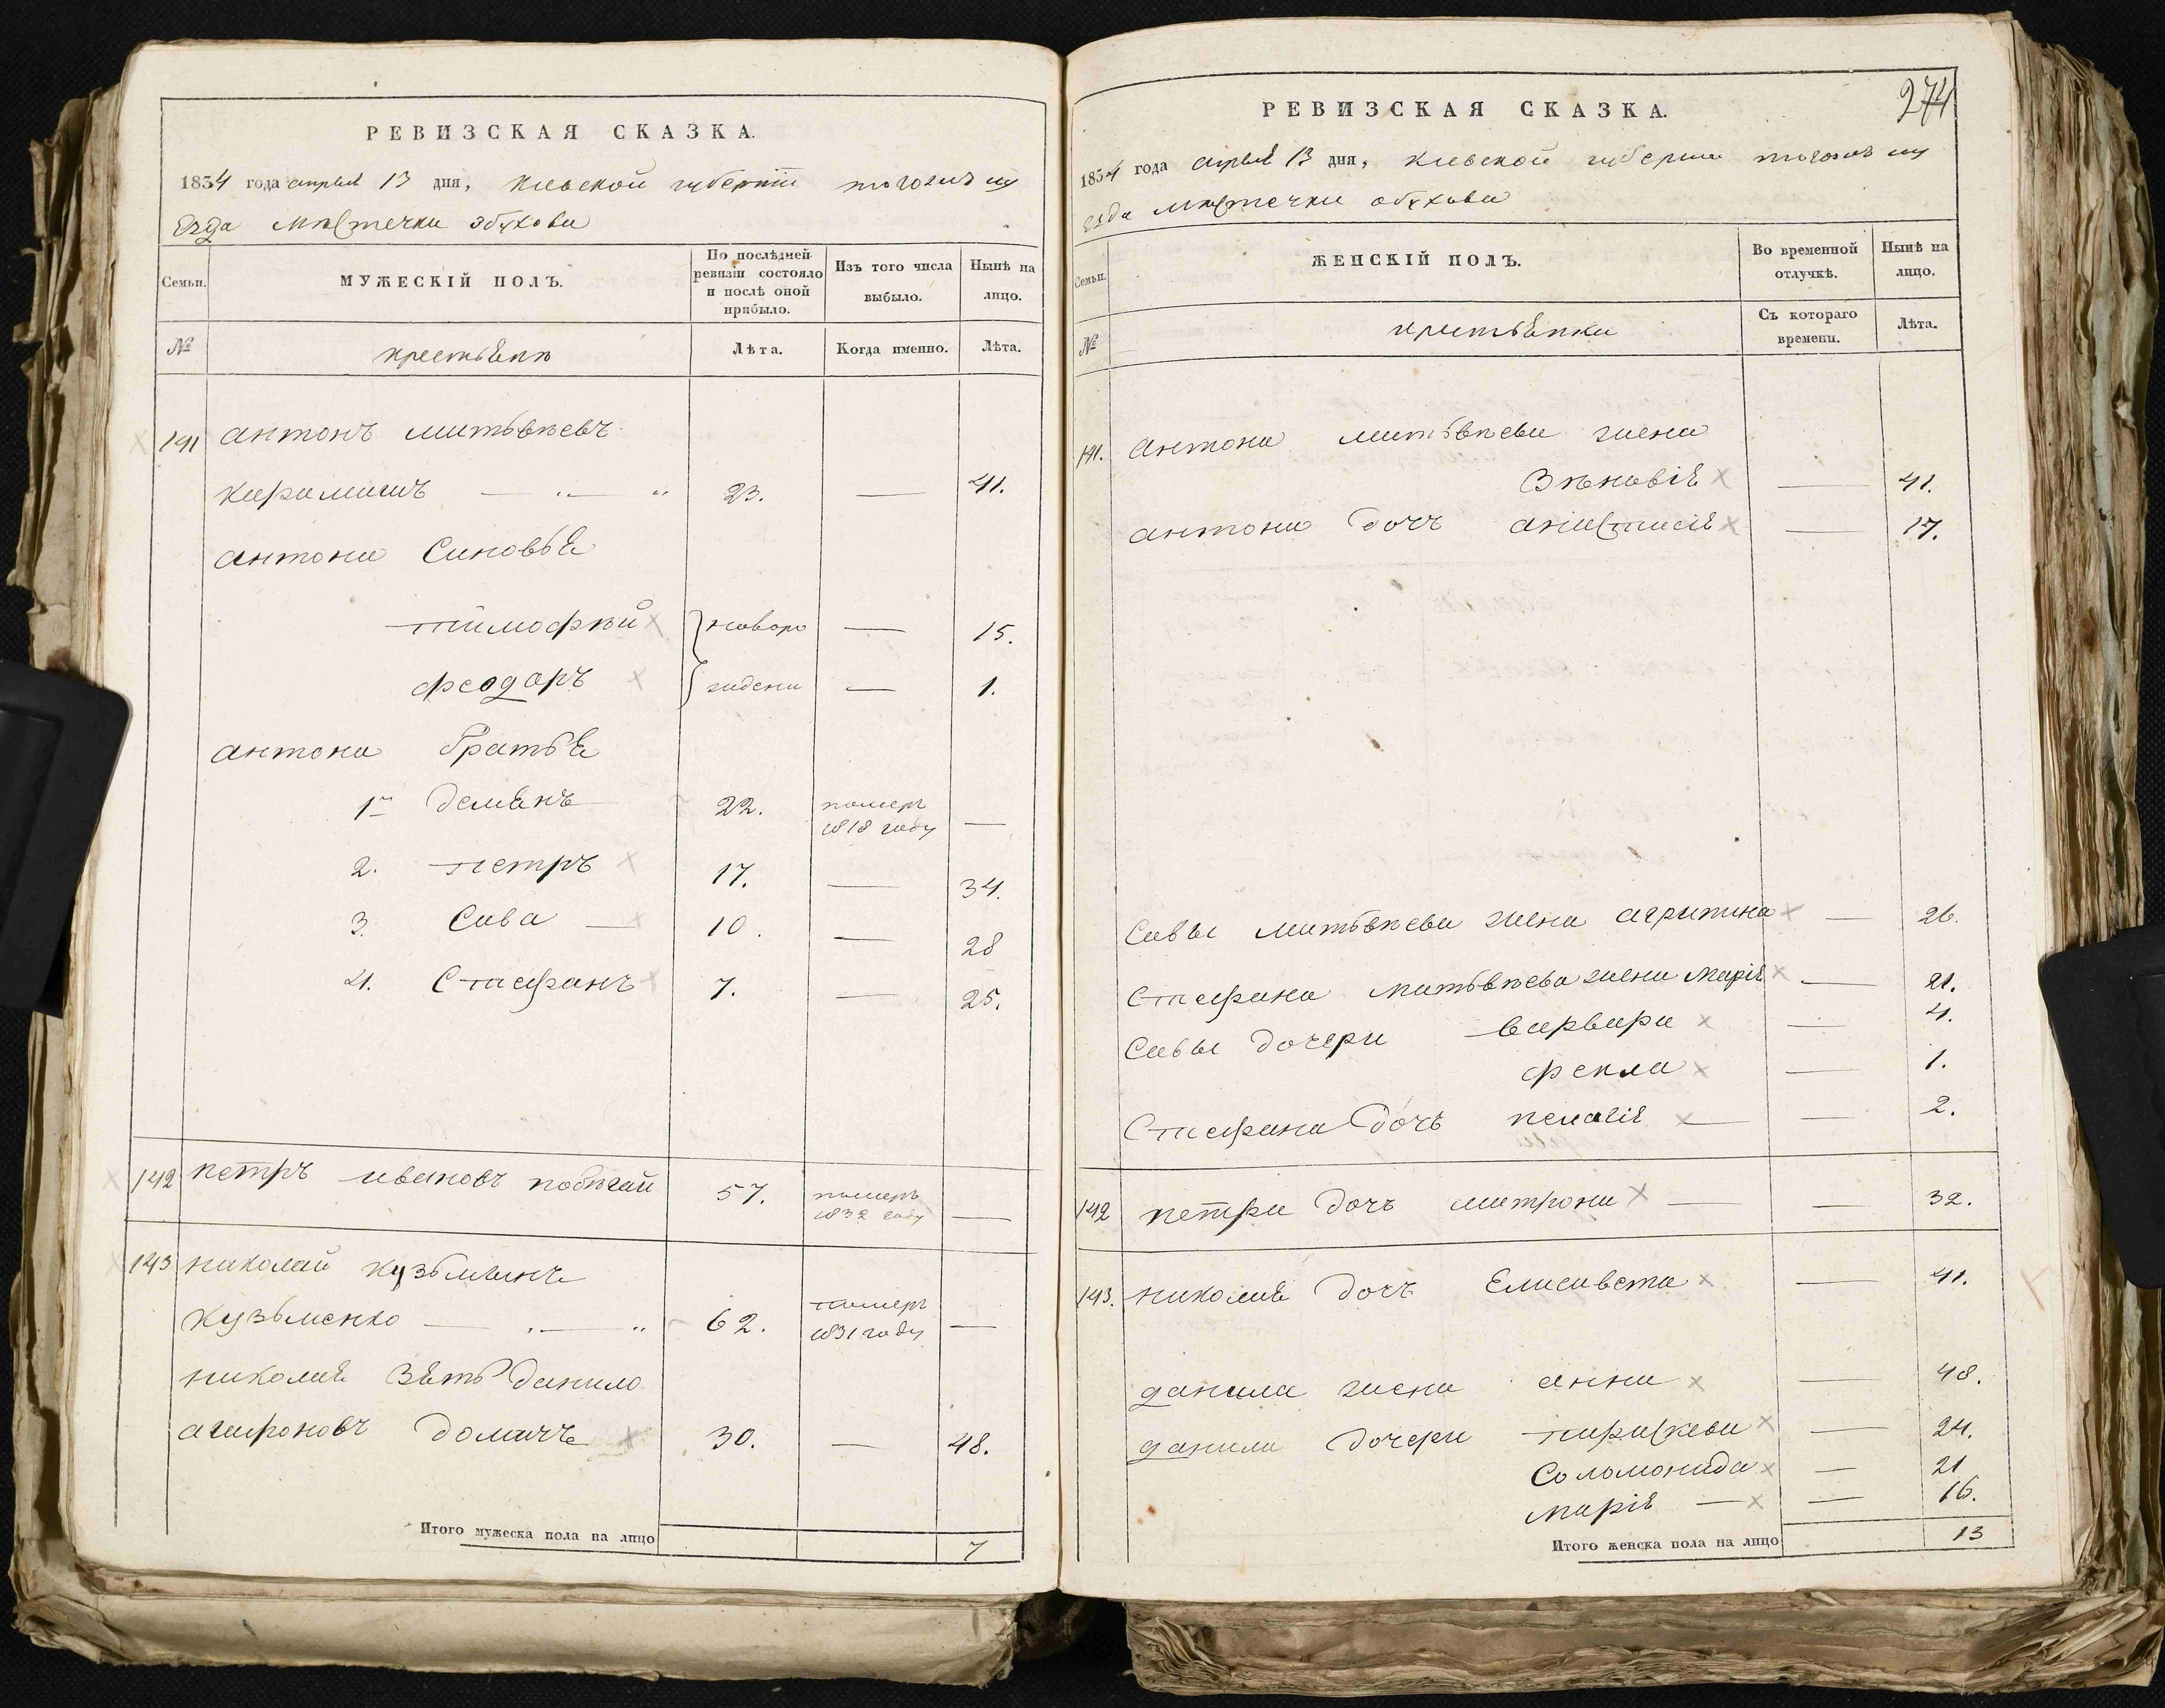 РЕВИЗСКАЯ СКАЗКА.
1834 года апреля 13 дня, киевской губернїи тогожъ уу
езда мѣстечка обухова
Семьи.
МУЖЕСКІЙ ПОЛЪ.
По послѣдней
ревизіи состояло
и послѣ оной
прибыло.
Изъ того числа
выбыло.
Нынѣ на
лицо.
№
крестьяне
Лѣта.
Когда именно.
Лѣта.
141 антонъ матьвѣевъ
23. — 41.
антона синовья
тимофѣй новоро — 15.
феодоръ ждени — 1.
антона братья
1й демянъ 22. померъ 1818 году —
2. петръ 17. — 34.
3. Сава — 10. — 28
4. Стефанъ 7. — 25.
142 петръ ивановъ побѣгай 57. померъ 1832 году —
143 николай кузьминъ
кузьменко — 62. померъ 1831 году —
николая зять данило
агафоновъ 30. — 48.
Итого мужеска пола на лицо 7
274
РЕВИЗСКАЯ СКАЗКА.
1834 года апреля 13 дня, киевской губернии тогожъ уу
езда мѣстечка обухова
Семьи.
ЖЕНСКІЙ ПОЛЪ.
Во временной
отлучкѣ.
Нынѣ на
лицо.
№
крестьянки
Съ котораго
времени.
Лѣта.
141. антона матьвѣева жена
Зѣновія — 41.
антона дочъ анастасія — 17.
Савы матьвѣева жена агрипина — 26.
Стефана матьвѣева жена марія — 21.
Савы дочери варвара — 4.
фекла — 1.
Стефана дочъ пелагія — 2.
142 петра дочъ матрона — — 32.
143. николая дочъ Елисавета — 41.
данила жена анна — 48.
данила дочери параскева — 24.
Соломонида — 21
марія — — 16.
Итого женска пола на лицо 13